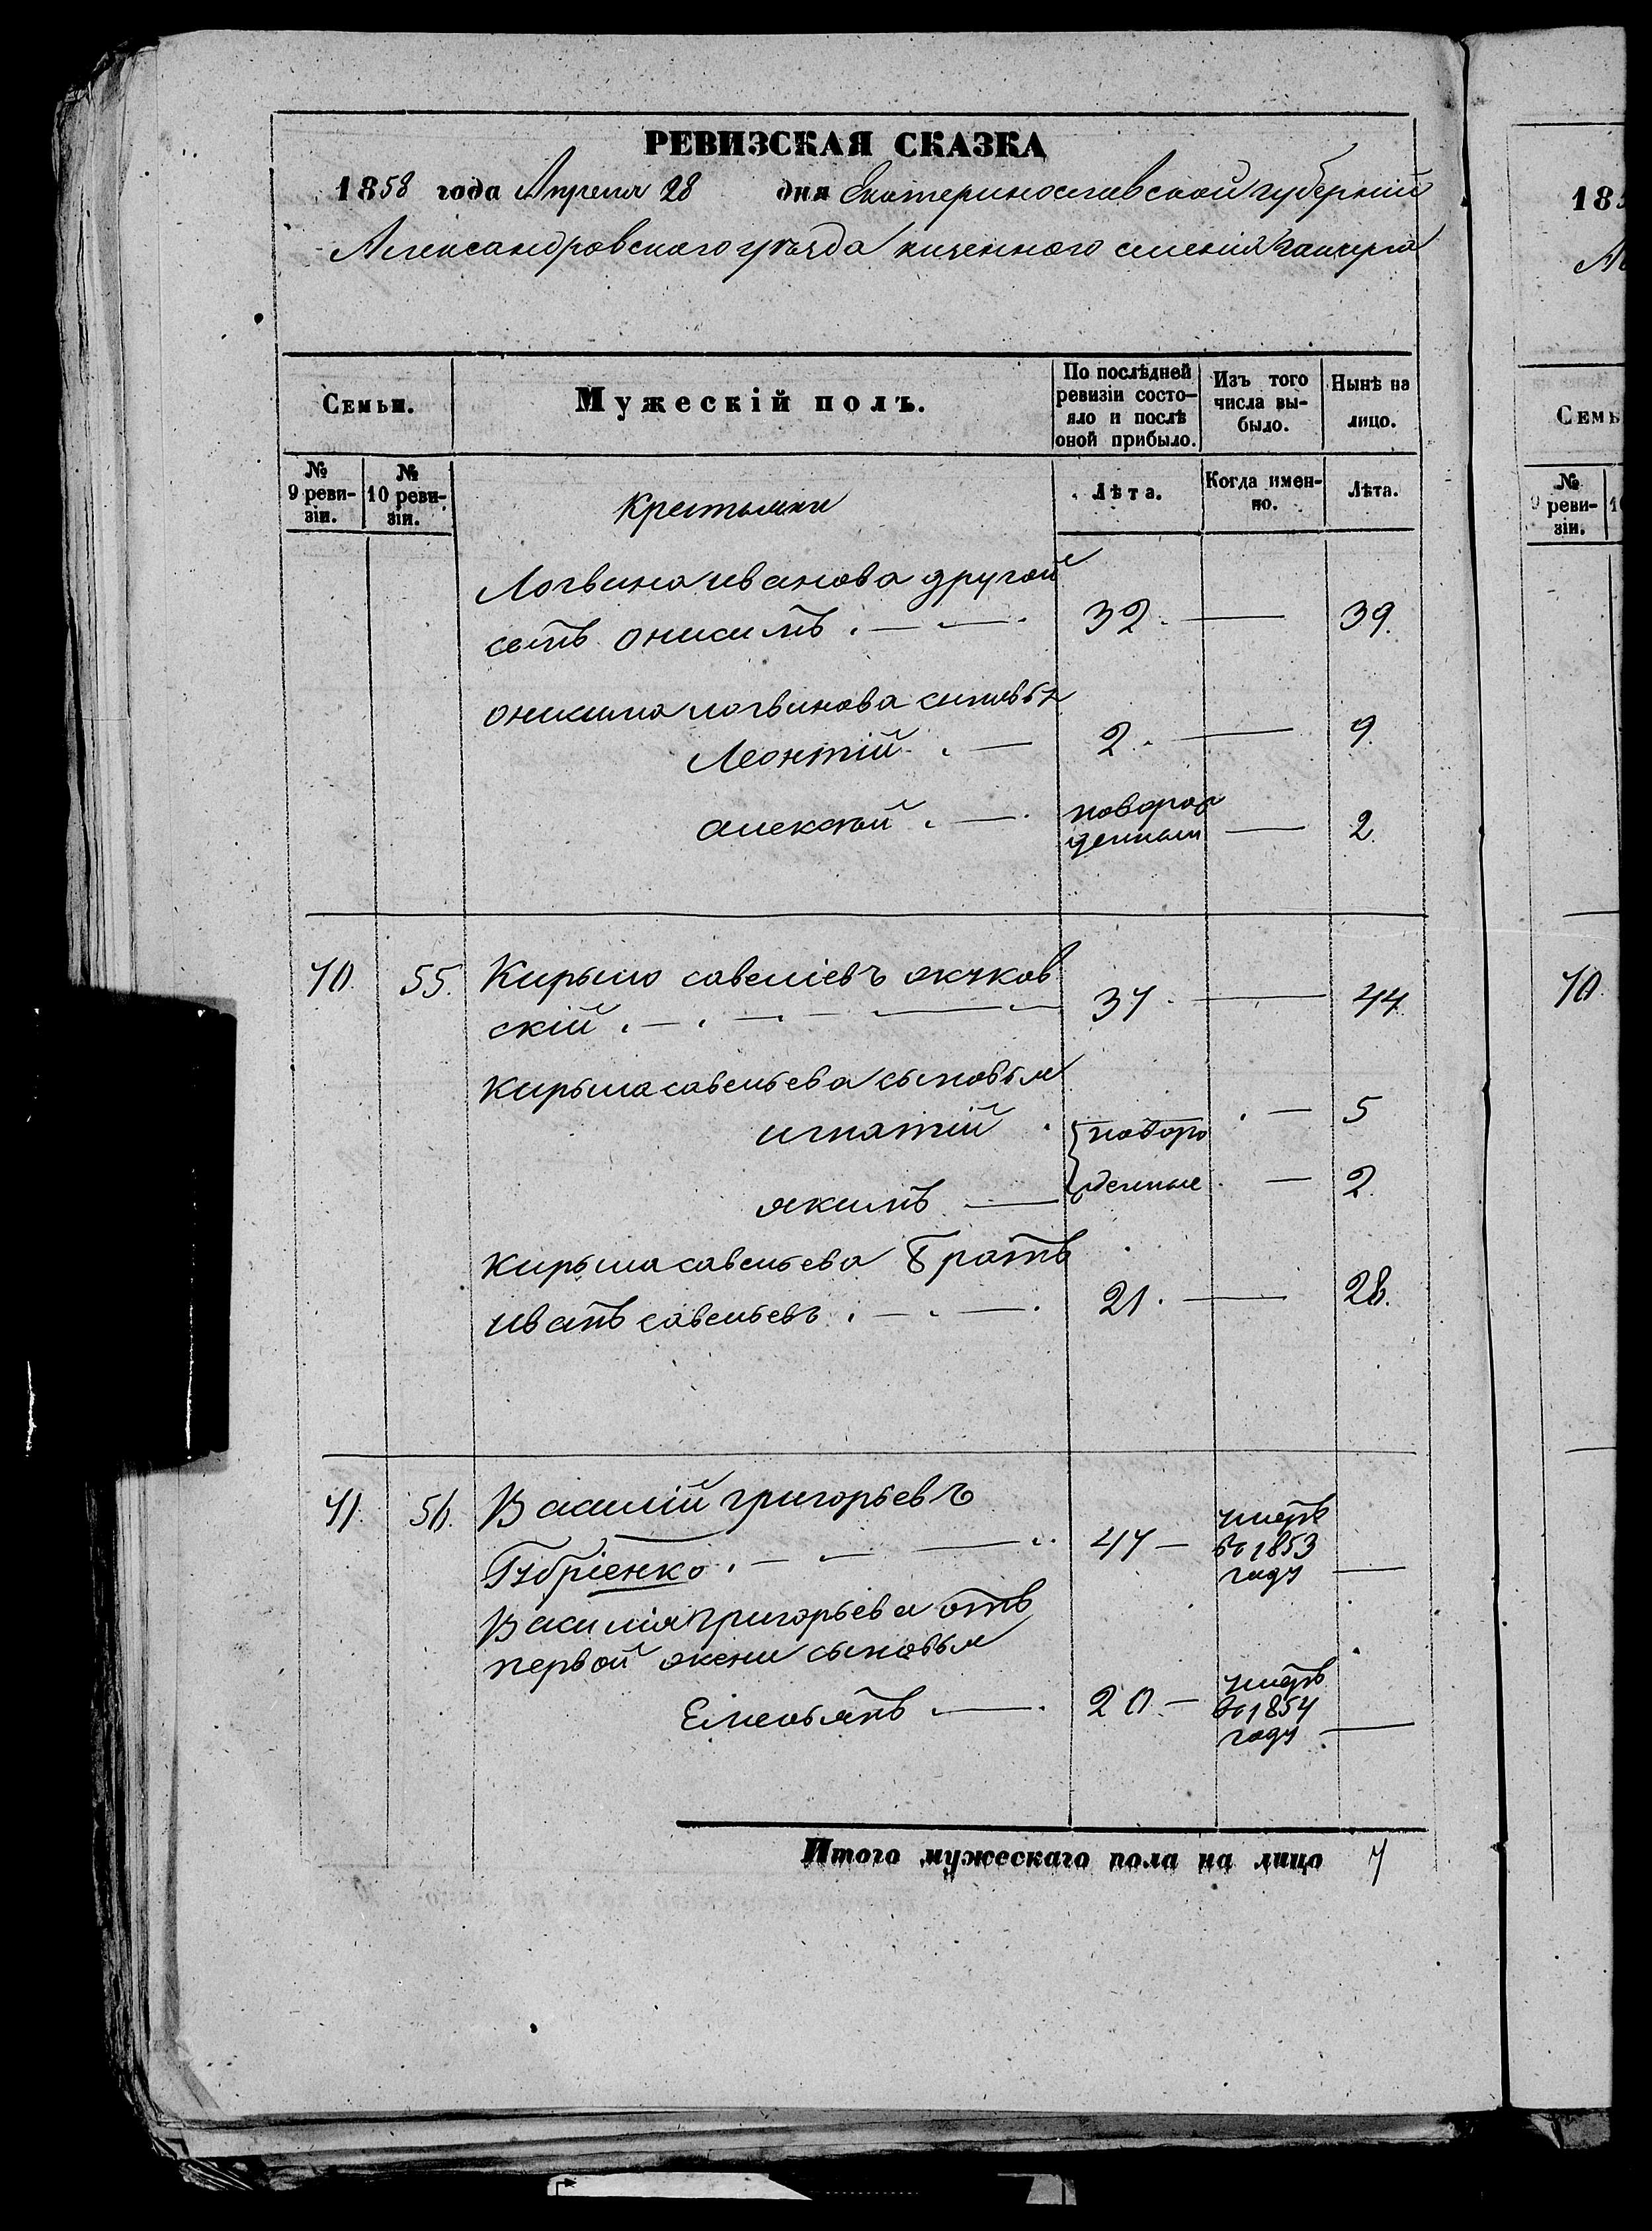 РЕВИЗСКАЯ СКАЗКА
1858 года Апреля 28 дня Екатеринославской губерніи
Александровского уѣзда казенного селенія
Семьи.
Мужескій полъ.
По послѣдней ревизіи состо-
яло и послѣ
оной прибыло.
Изъ того
числа вы-
было.
Нынѣ на
лицо.
№
9 реви-
зіи.
№
10 реви-
зіи.
Крестьяни
Лѣта.
Когда имен-
но.
Лѣта.
Логвина иванова другой
сынъ онисимъ 32 39.
онисима логвинова сыновья
Леонтій 2 9.
алексѣй новорож
денный 2.
70. 55. Кирыло савеліевъ
скій 37 44
кирыла савельева сыновья
игнатій новоро 5
якимъ денные 2.
кирыла савельева братъ
иванъ савельевъ 21. 28.
71. 56. Василій григорьевъ
47 умеръ
въ 1853
году
Василія григорьева отъ
первой жени сыновья
Емельянъ 20 умеръ
въ 1854
году
Итого мужескаго пола на лицо 7
185
Семь
№
9 реви-
зіи.
70.